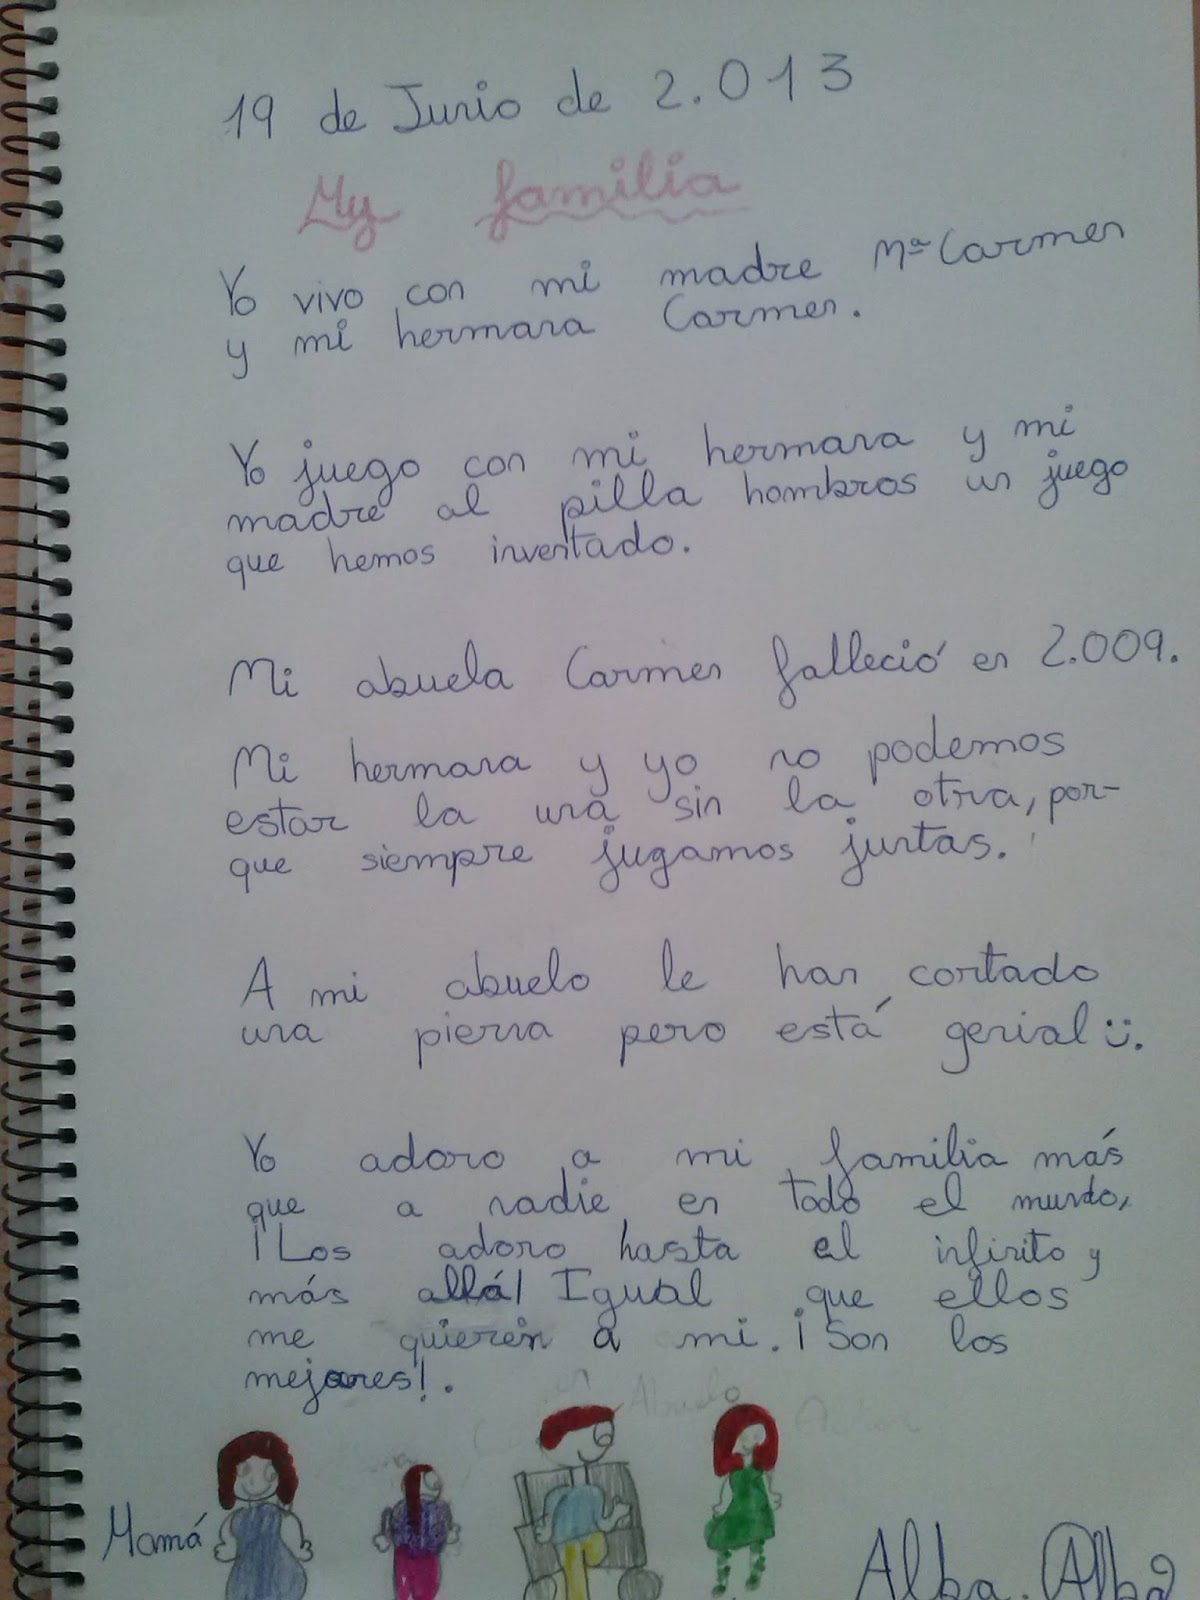 19 de Junio de 2.013
My familia
Yo vivo con mi madre Mª Carmen
y mi hermana Carmen.
Yo juego con mi hermana y mi
madre al pilla hombros un juego
que hemos inventado.
Mi abuela Carmen falleció en 2.009.
Mi hermana y yo no podemos
estar la una sin la otra, por-
que siempre jugamos juntas.
A mi abuelo le han cortado
una pierna pero está genial :).
Yo adoro a mi familia más
que a nadie en todo el mundo,
¡Los adoro hasta el infinito y
más allá! Igual que ellos
me quieren a mi. ¡Son los
mejores!.
Abuelo
Mamá
Alba. Alba